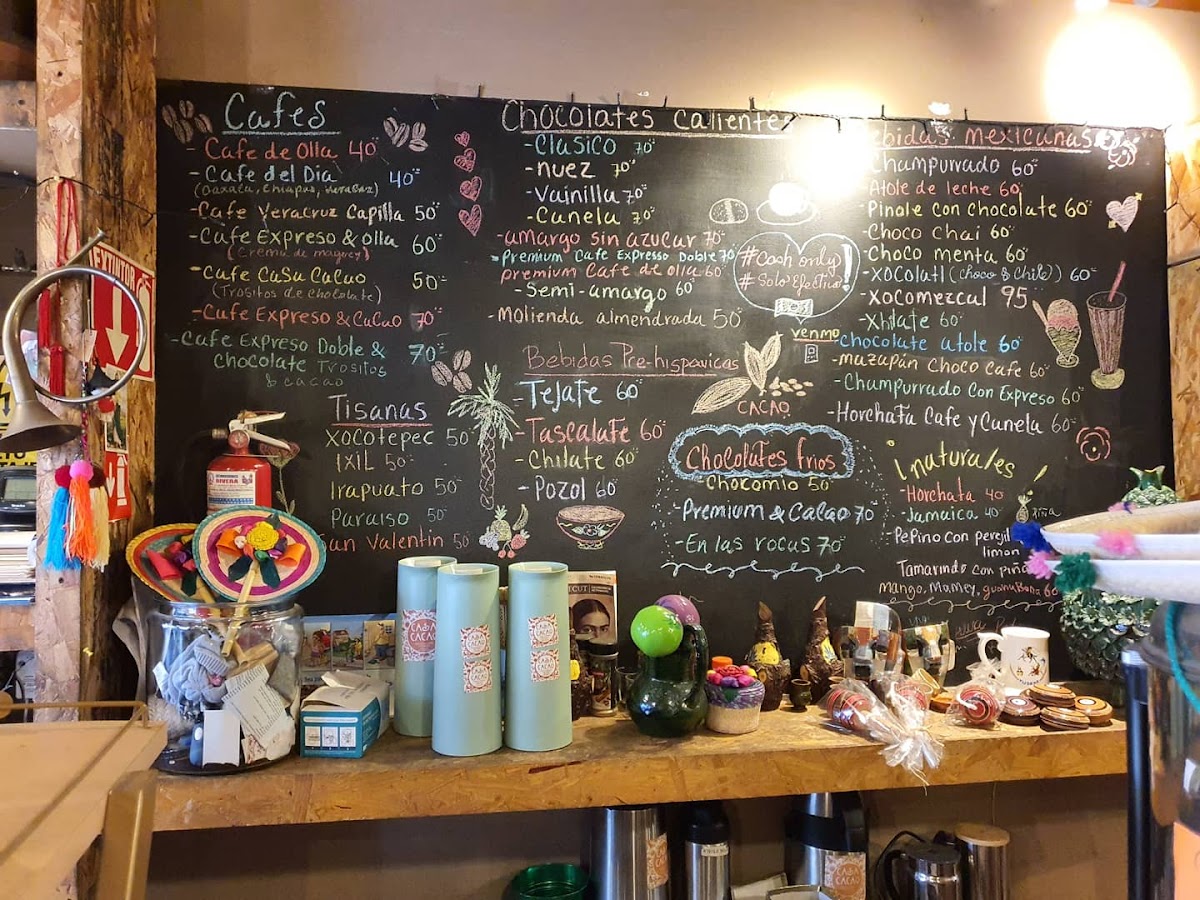 Cafes
- Cafe de Olla 40
- Cafe del Dia 40
(Oaxaca, Chiapas, Veracruz)
- Cafe Veracruz Capilla 50
- Cafe Expreso & olla 60
(Crema de maguey)
- Cafe CaSa CaCao 50
(Trositos de chocolate)
- Cafe Expreso & CaCao 70
- Cafe Expreso Doble & 70
chocolate Trositos
& cacao
Tisanas
Xocotepec 50
IXIL 50
Irapuato 50
Paraiso 50
San Valentin 50
Chocolates calientes
- Clasico 70
- nuez 70
- Vainilla 70
- Canela 70
- amargo sin azucar 70
- Premium Cafe Expreso Doble 70
premium Cafe de olla 60
- Semi-amargo 60
- Molienda almendrada 50
Bebidas Pre-hispanicas
- Tejate 60
- Tascalate 60
- Chilate 60
- Pozol 60
#Cash only!
#Solo Efectivo
venmo
CACAO
Chocolates frios
- Chocomio 50
- Premium & Cacao 70
- En las rocas 70
Bebidas mexicanas
- Champurrado 60
- Atole de leche 60
- Pinole con chocolate 60
- Choco chai 60
- Choco menta 60
- xocolatl (choco & chile) 60
- Xocomezcal 95
- Xhilate 60
- chocolate atole 60
- mazapán Choco cafe 60
- Champurrado con Expreso 60
- Horchata Cafe y Canela 60
¡naturales!
- Horchata 40
- Jamaica 40
Piña
- Pepino con perejil
limon
Tamarindo con piña
mango, Mamey, guanabana 60
EXTINTOR
RIVERA
CASA
CACAO
CASA
CACAO